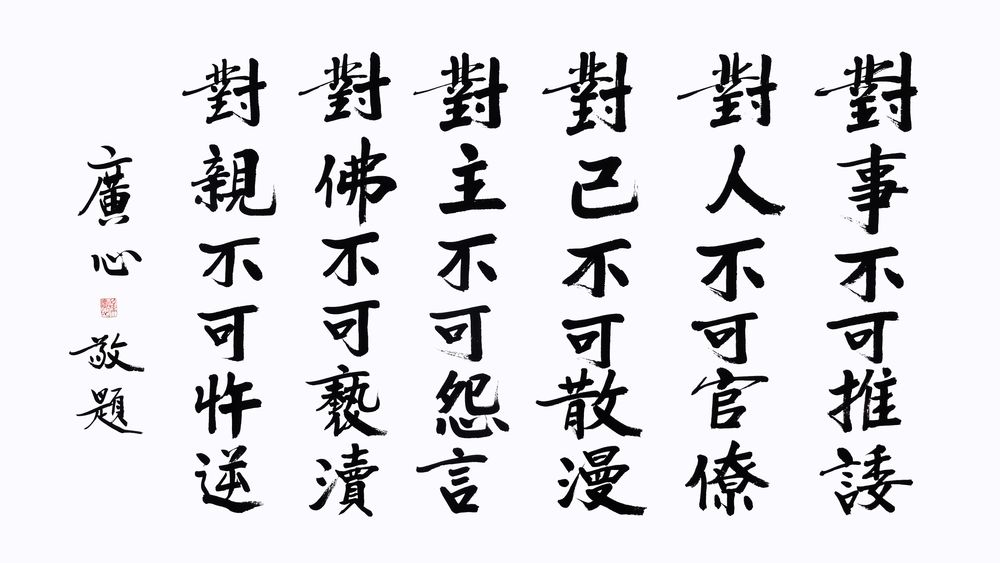 對事不可推諉
對人不可官僚
對己不可散漫
對主不可怨言
對佛不可褻瀆
對親不可忤逆
廣心
敬題